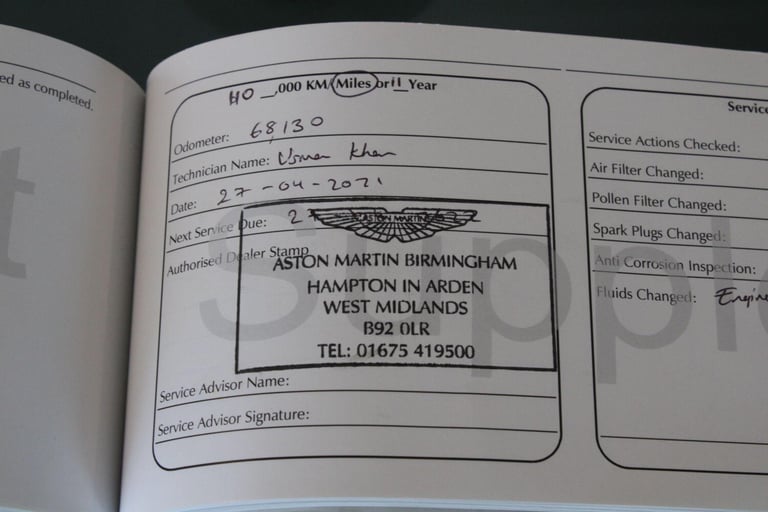 ed as completed.
110 __,000 KM/Miles or 11 Year
Odometer: 68,130
Technician Name: Usman Khan
Date: 27-04-2021
Next Service Due:
ASTON MARTIN
Authorised Dealer Stamp
ASTON MARTIN BIRMINGHAM
HAMPTON IN ARDEN
WEST MIDLANDS
B92 0LR
TEL: 01675 419500
Service Advisor Name:
Service Advisor Signature:
Service
Service Actions Checked:
Air Filter Changed:
Pollen Filter Changed:
Spark Plugs Changed:
Anti Corrosion Inspection:
Fluids Changed: Engine
Supple